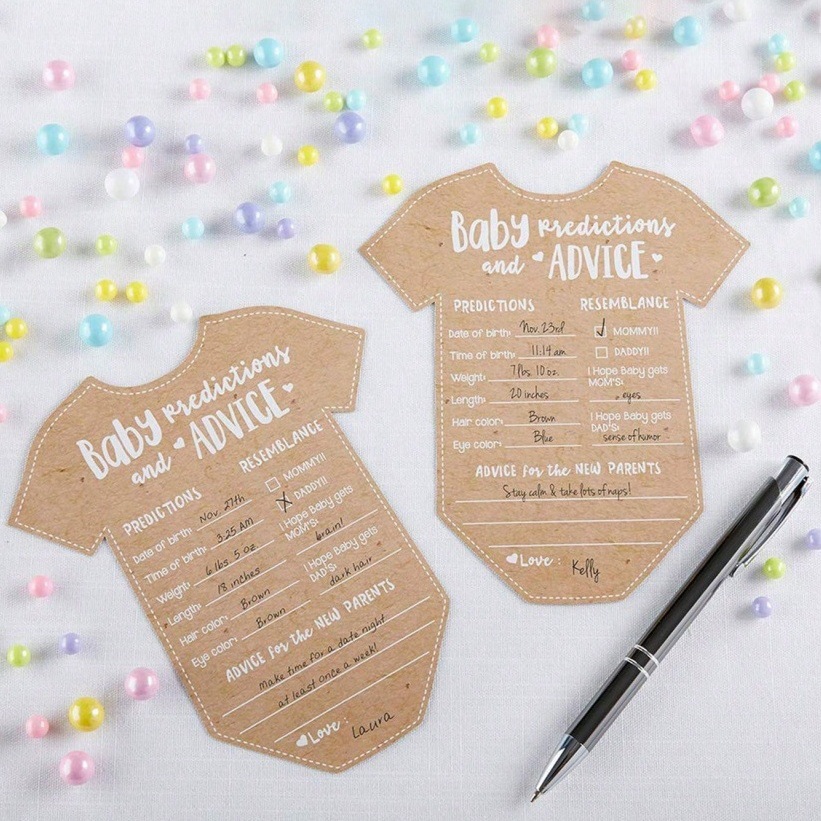 Baby predictions
and ADVICE
PREDICTIONS
Date of birth: Nov. 27th
Time of birth: 3:25 AM
Weight: 6 lbs 5 oz.
Length: 18 inches
Hair color: Brown
Eye color: Brown
RESEMBLANCE
MOMMY!!
DADDY!!
I Hope Baby gets
MOM'S:
brain!
I Hope Baby gets
DAD'S:
dark hair
ADVICE for the NEW PARENTS
Make time for a date night
at least once a week!
Love: Laura
Baby predictions
and ADVICE
PREDICTIONS
Date of birth: Nov. 23rd
Time of birth: 11:14 am
Weight: 7 lbs 10 oz.
Length: 20 inches
Hair color: Brown
Eye color: Blue
RESEMBLANCE
MOMMY!!
DADDY!!
I Hope Baby gets
MOM'S:
eyes
I Hope Baby gets
DAD'S:
sense of humor
ADVICE for the NEW PARENTS
Stay calm & take lots of naps!
Love: Kelly